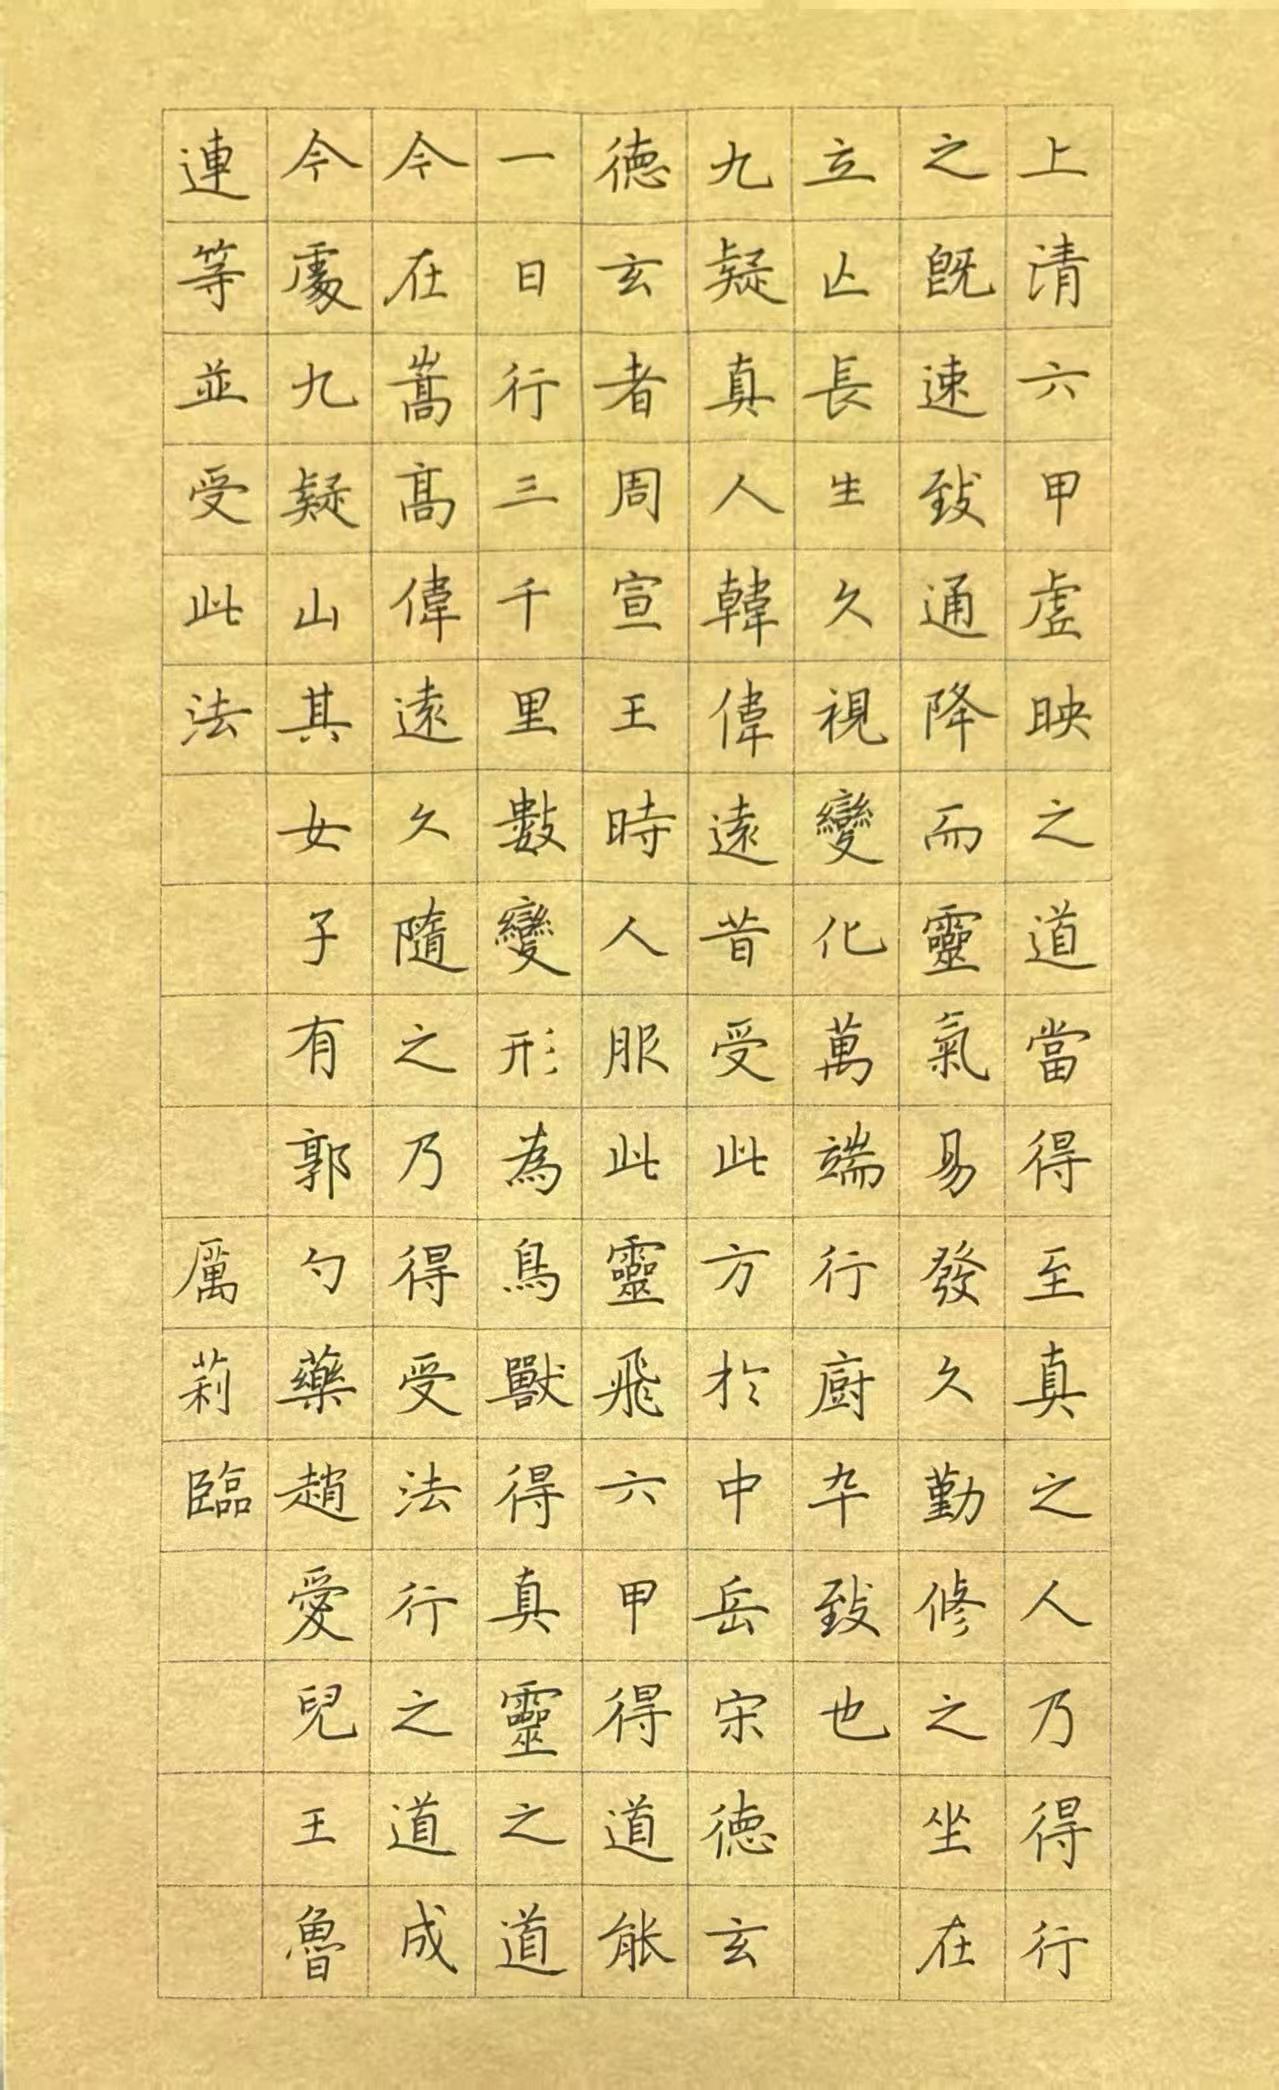 上清六甲虛映之道當得至真之人乃得行
之既速致通降而靈氣易發久勤修之坐在
立亾長生久視變化萬端行廚卒致也
九疑真人韓偉遠昔受此方於中岳宋德玄
德玄者周宣王時人服此靈飛六甲得道能
一日行三千里數變形為鳥獸得真靈之道
今在嵩高偉遠久隨之乃得受法行之道成
今處九疑山其女子有郭勺藥趙愛兒王魯
連等並受此法
厲莉臨